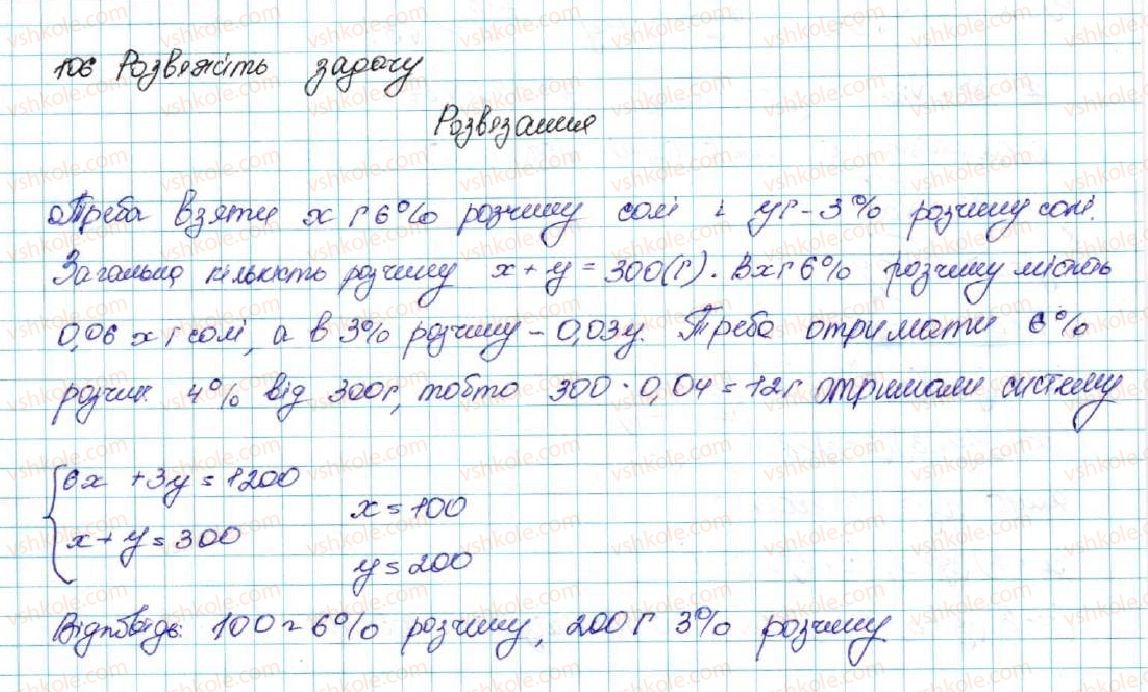 106 Розвяжіть задачу
Розвязання
Треба взяти x г 6% розчину солі і y г - 3% розчину солі.
Загальна кількість розчину x + y = 300 (г). В x г 6% розчину містить
0,06 x г солі, а в 3% розчину - 0,03y. Треба отримати 6%
розчин 4% від 300г, тобто 300 · 0,04 = 12г отримали систему
6x + 3y = 1200
x = 100
x + y = 300
y = 200
Відповідь: 100г 6% розчину, 200 г 3% розчину